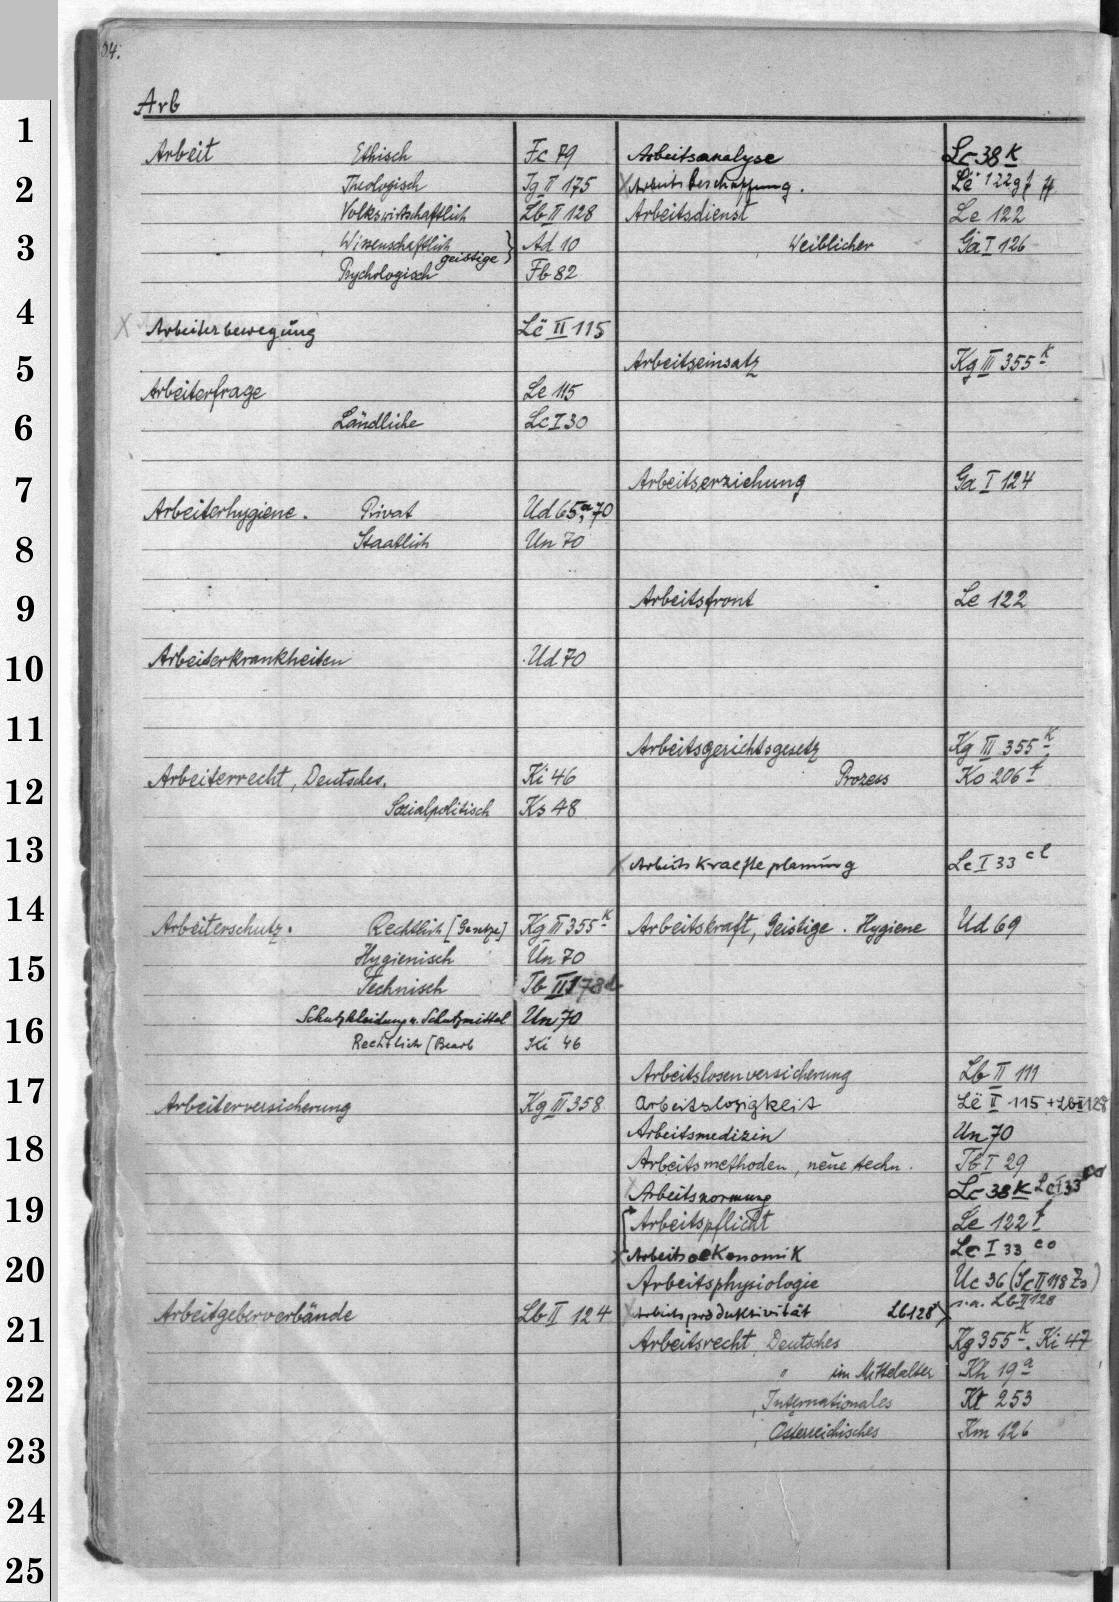 04.
Arb
Arbeit Ethisch Fc 79
Theologisch Ig II 175
Volkswirtschaftlich Lb II 128
Wissenschaftlich } Ad 10
geistige
Psychologisch Fb 82
X Arbeiterbewegung Lë II 115
Arbeiterfrage Le 115
Ländliche Lc I 30
Arbeiterhygiene. Privat Ud 65a, 70
Staatlich Un 70
Arbeiterkrankheiten Ud 70
Arbeiterrecht, Deutsches. Ki 46
Sozialpolitisch Ks 48
Arbeiterschutz. Rechtlich [Gesetze] Kg III 355 K
Hygienisch Un 70
Technisch Tb III 78d
Schutzkleidung u. Schutzmittel Un 70
Rechtlich [Bearb Ki 46
Arbeiterversicherung Kg III 358
Arbeitgeberverbände Lb II 124
Arbeitsanalyse Lc 38 K
X Arbeitsbeschaffung. Le 122g
Arbeitsdienst Le 122
, Weiblicher Ga I 126
Arbeitseinsatz Kg III 355 K
Arbeitserziehung Ga I 124
Arbeitsfront Le 122
Arbeitsgerichtsgesetz Kg III 355 K
Prozess Ko 206 f
X Arbeitskraefteplanung Lc I 33 cl
Arbeitskraft, Geistige. Hygiene Ud 69
Arbeitslosenversicherung Lb II 111
Arbeitslosigkeit Lë II 115 + Lb II 128
Arbeitsmedizin Un 70
Arbeitsmethoden, neue techn. Tb I 29
X Arbeitsnormung Lc 38 K Lc I 33 co
Arbeitspflicht Le 122 f
X Arbeitsoekonomik Lc I 33 co
Arbeitsphysiologie Uc 36 (Sc II 118 Zs)
X Arbeitsproduktivität Lb 128 s.a. Lb II 128
Arbeitsrecht, Deutsches Kg 355 K. Ki 47
" im Mittelalter Kh 19 a
, Internationales Kt 253
, Österreichisches Km 126
1
2
3
4
5
6
7
8
9
10
11
12
13
14
15
16
17
18
19
20
21
22
23
24
25